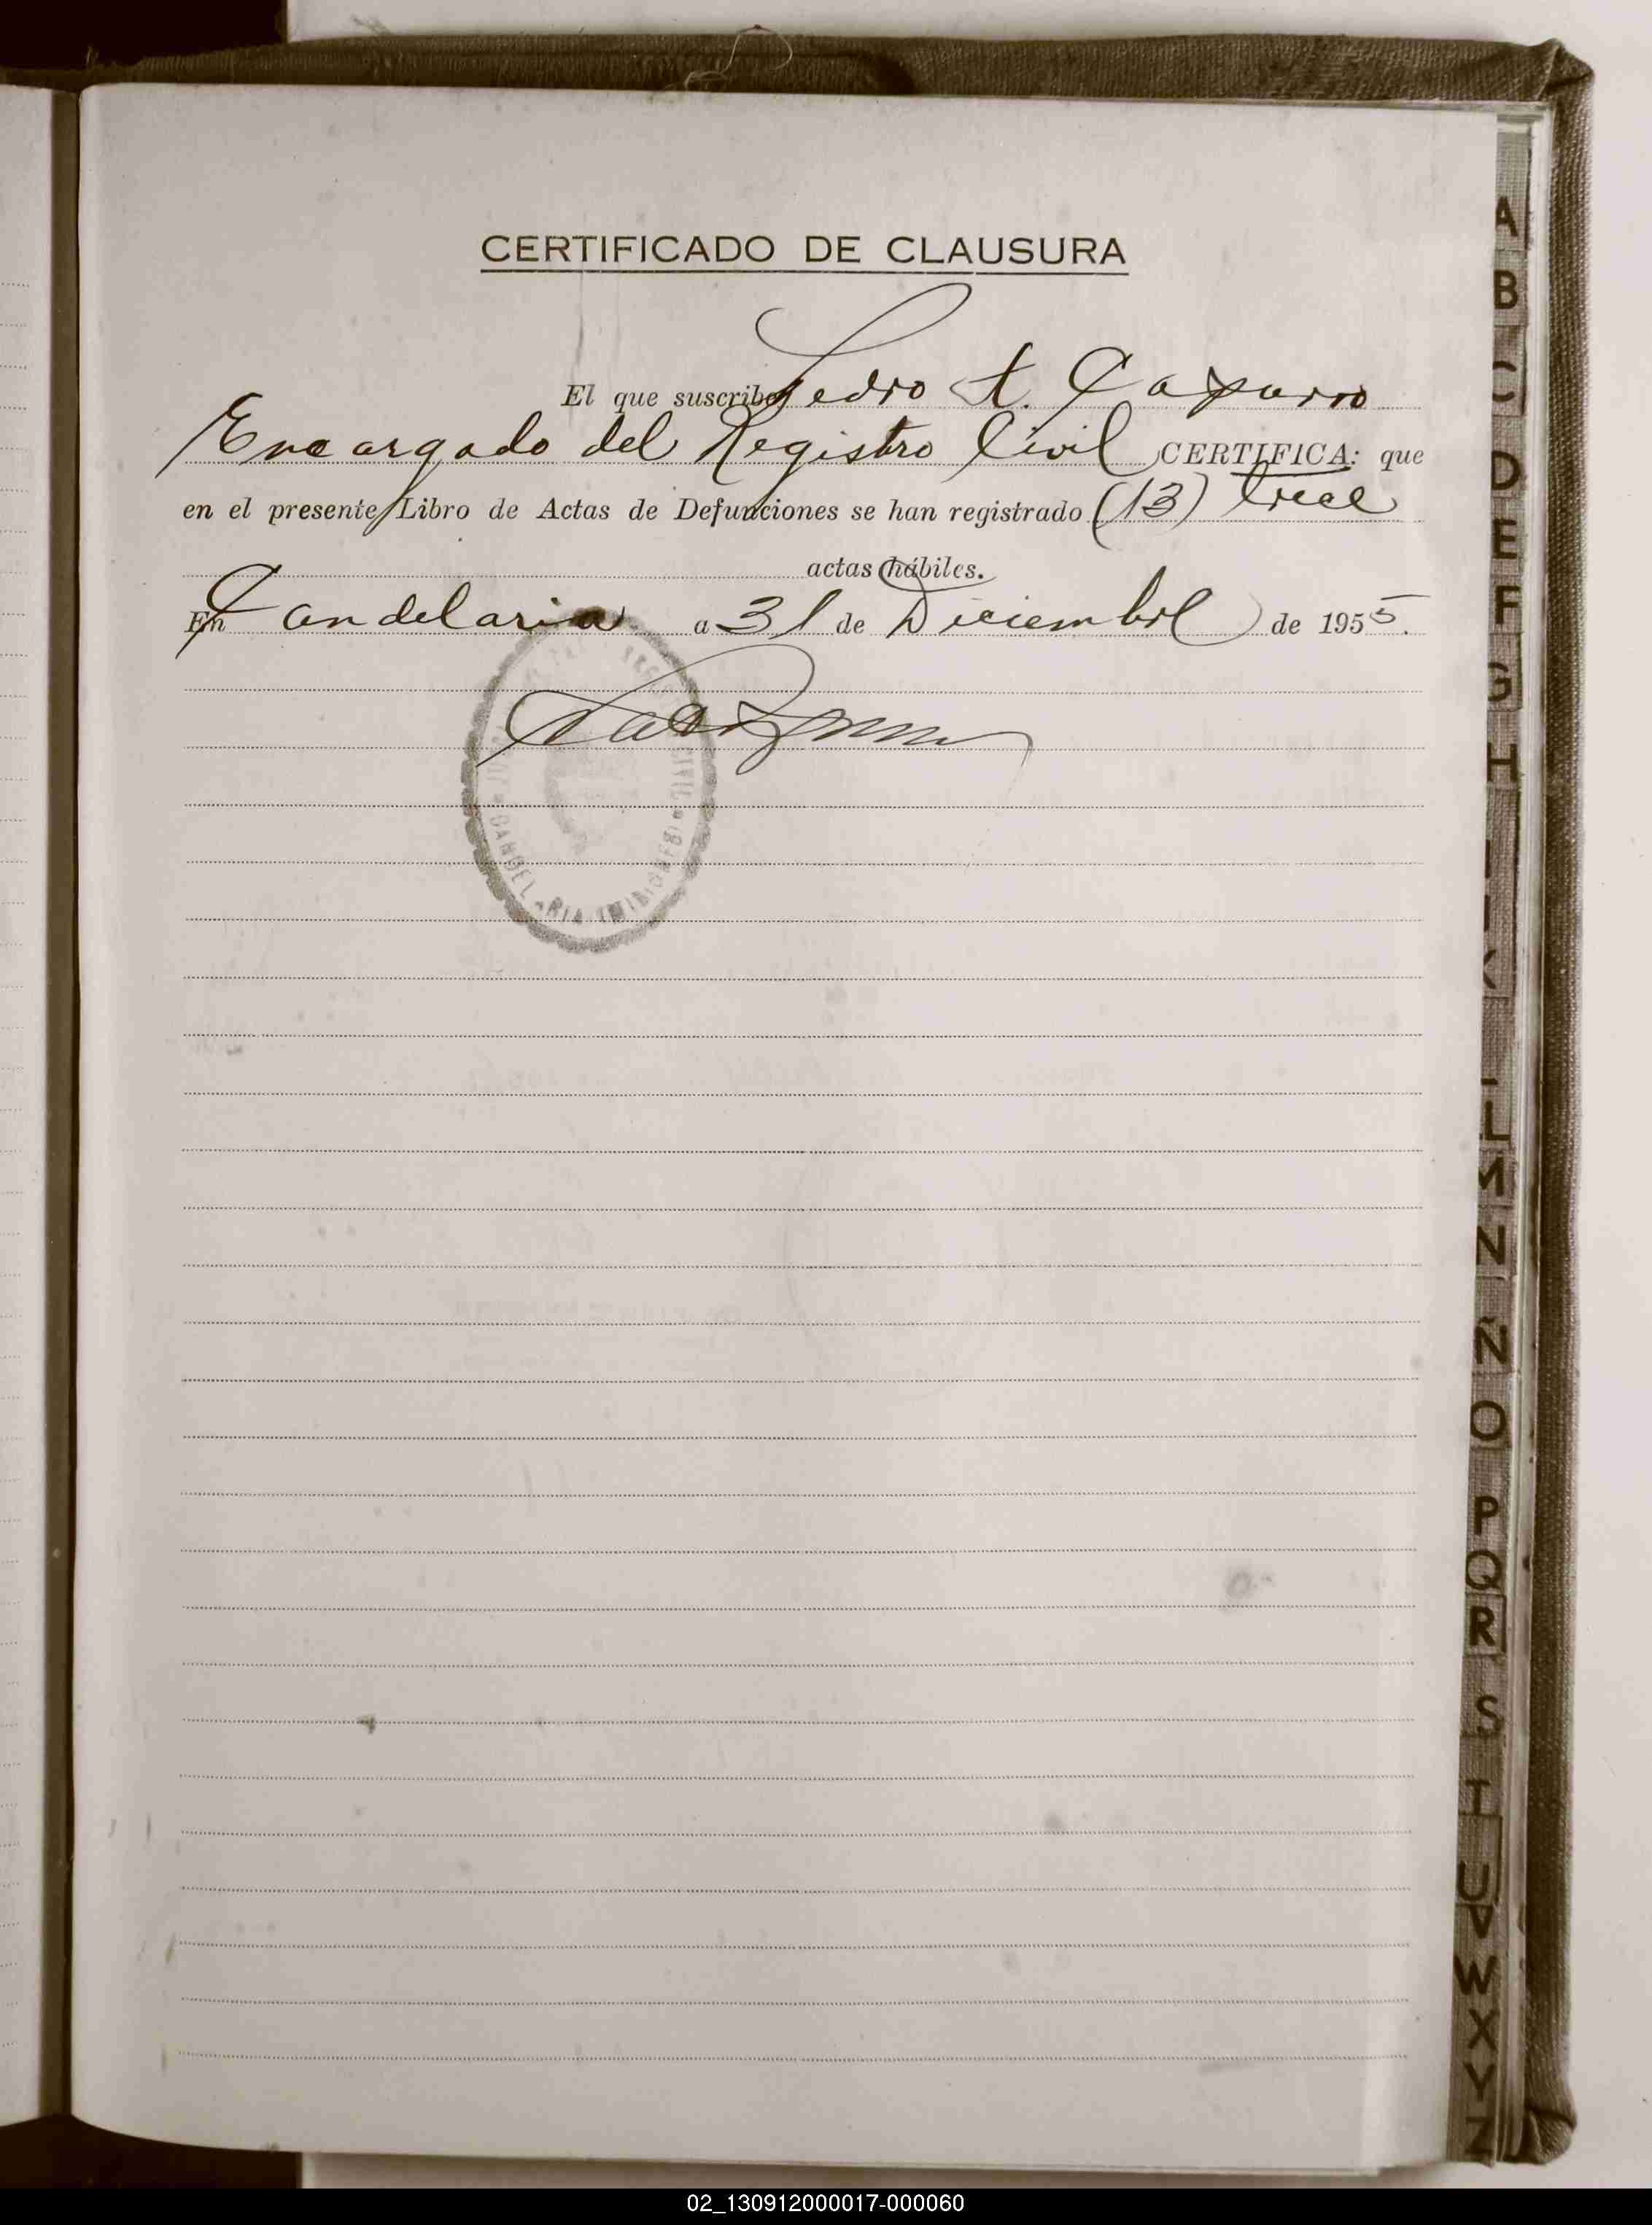 CERTIFICADO DE CLAUSURA
El que suscribe Pedro A. Capurro
Encargado del Registro Civil CERTIFICA: que
en el presente Libro de Actas de Defunciones se han registrado (13) trece
actas hábiles.
En Candelaria a 31 de Diciembre de 1955.
CANDELARIA (MISIONES)
A
B
C
D
E
F
G
H
I
J
K
L
M
N
Ñ
O
P
Q
R
S
T
U
V
W
X
Y
Z
02_130912000017-000060